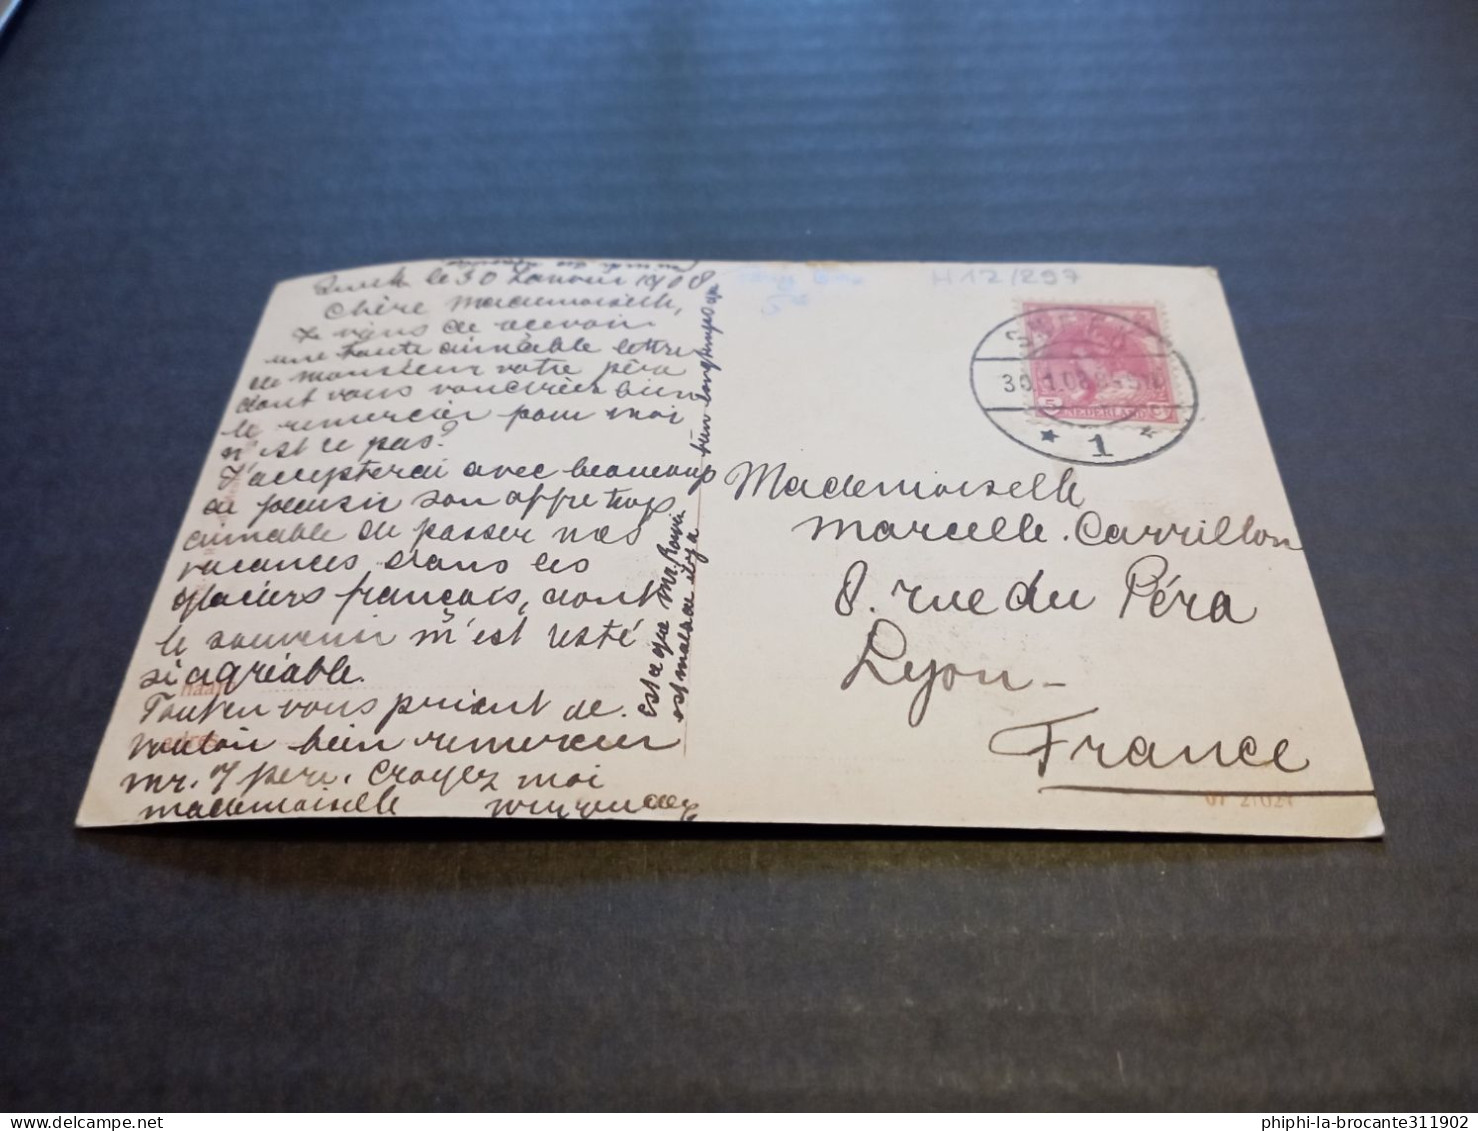 le 30 Janvier 1908
Chère Mademoiselle,
Je viens de recevoir
une toute aimable lettre
de monsieur votre père
dont vous voudrez bien
le remercier pour moi
n'est ce pas?
J'accepterai avec beaucoup
de plaisir son offre trop
aimable de passer nos
vacances dans les
glaciers français, dont
le souvenir m'est resté
si agréable.
Tout en vous priant de
vouloir bien remercier
mr. v. père. Croyez moi
mademoiselle
est ce que Mr.
est malade
bien longtemps
H12/297
30.1.08
5
NEDERLAND
1
Mademoiselle
Marcelle. Carrillon
8. rue du Péra
Lyon -
France
naar
adres
phiphi-la-brocante311902